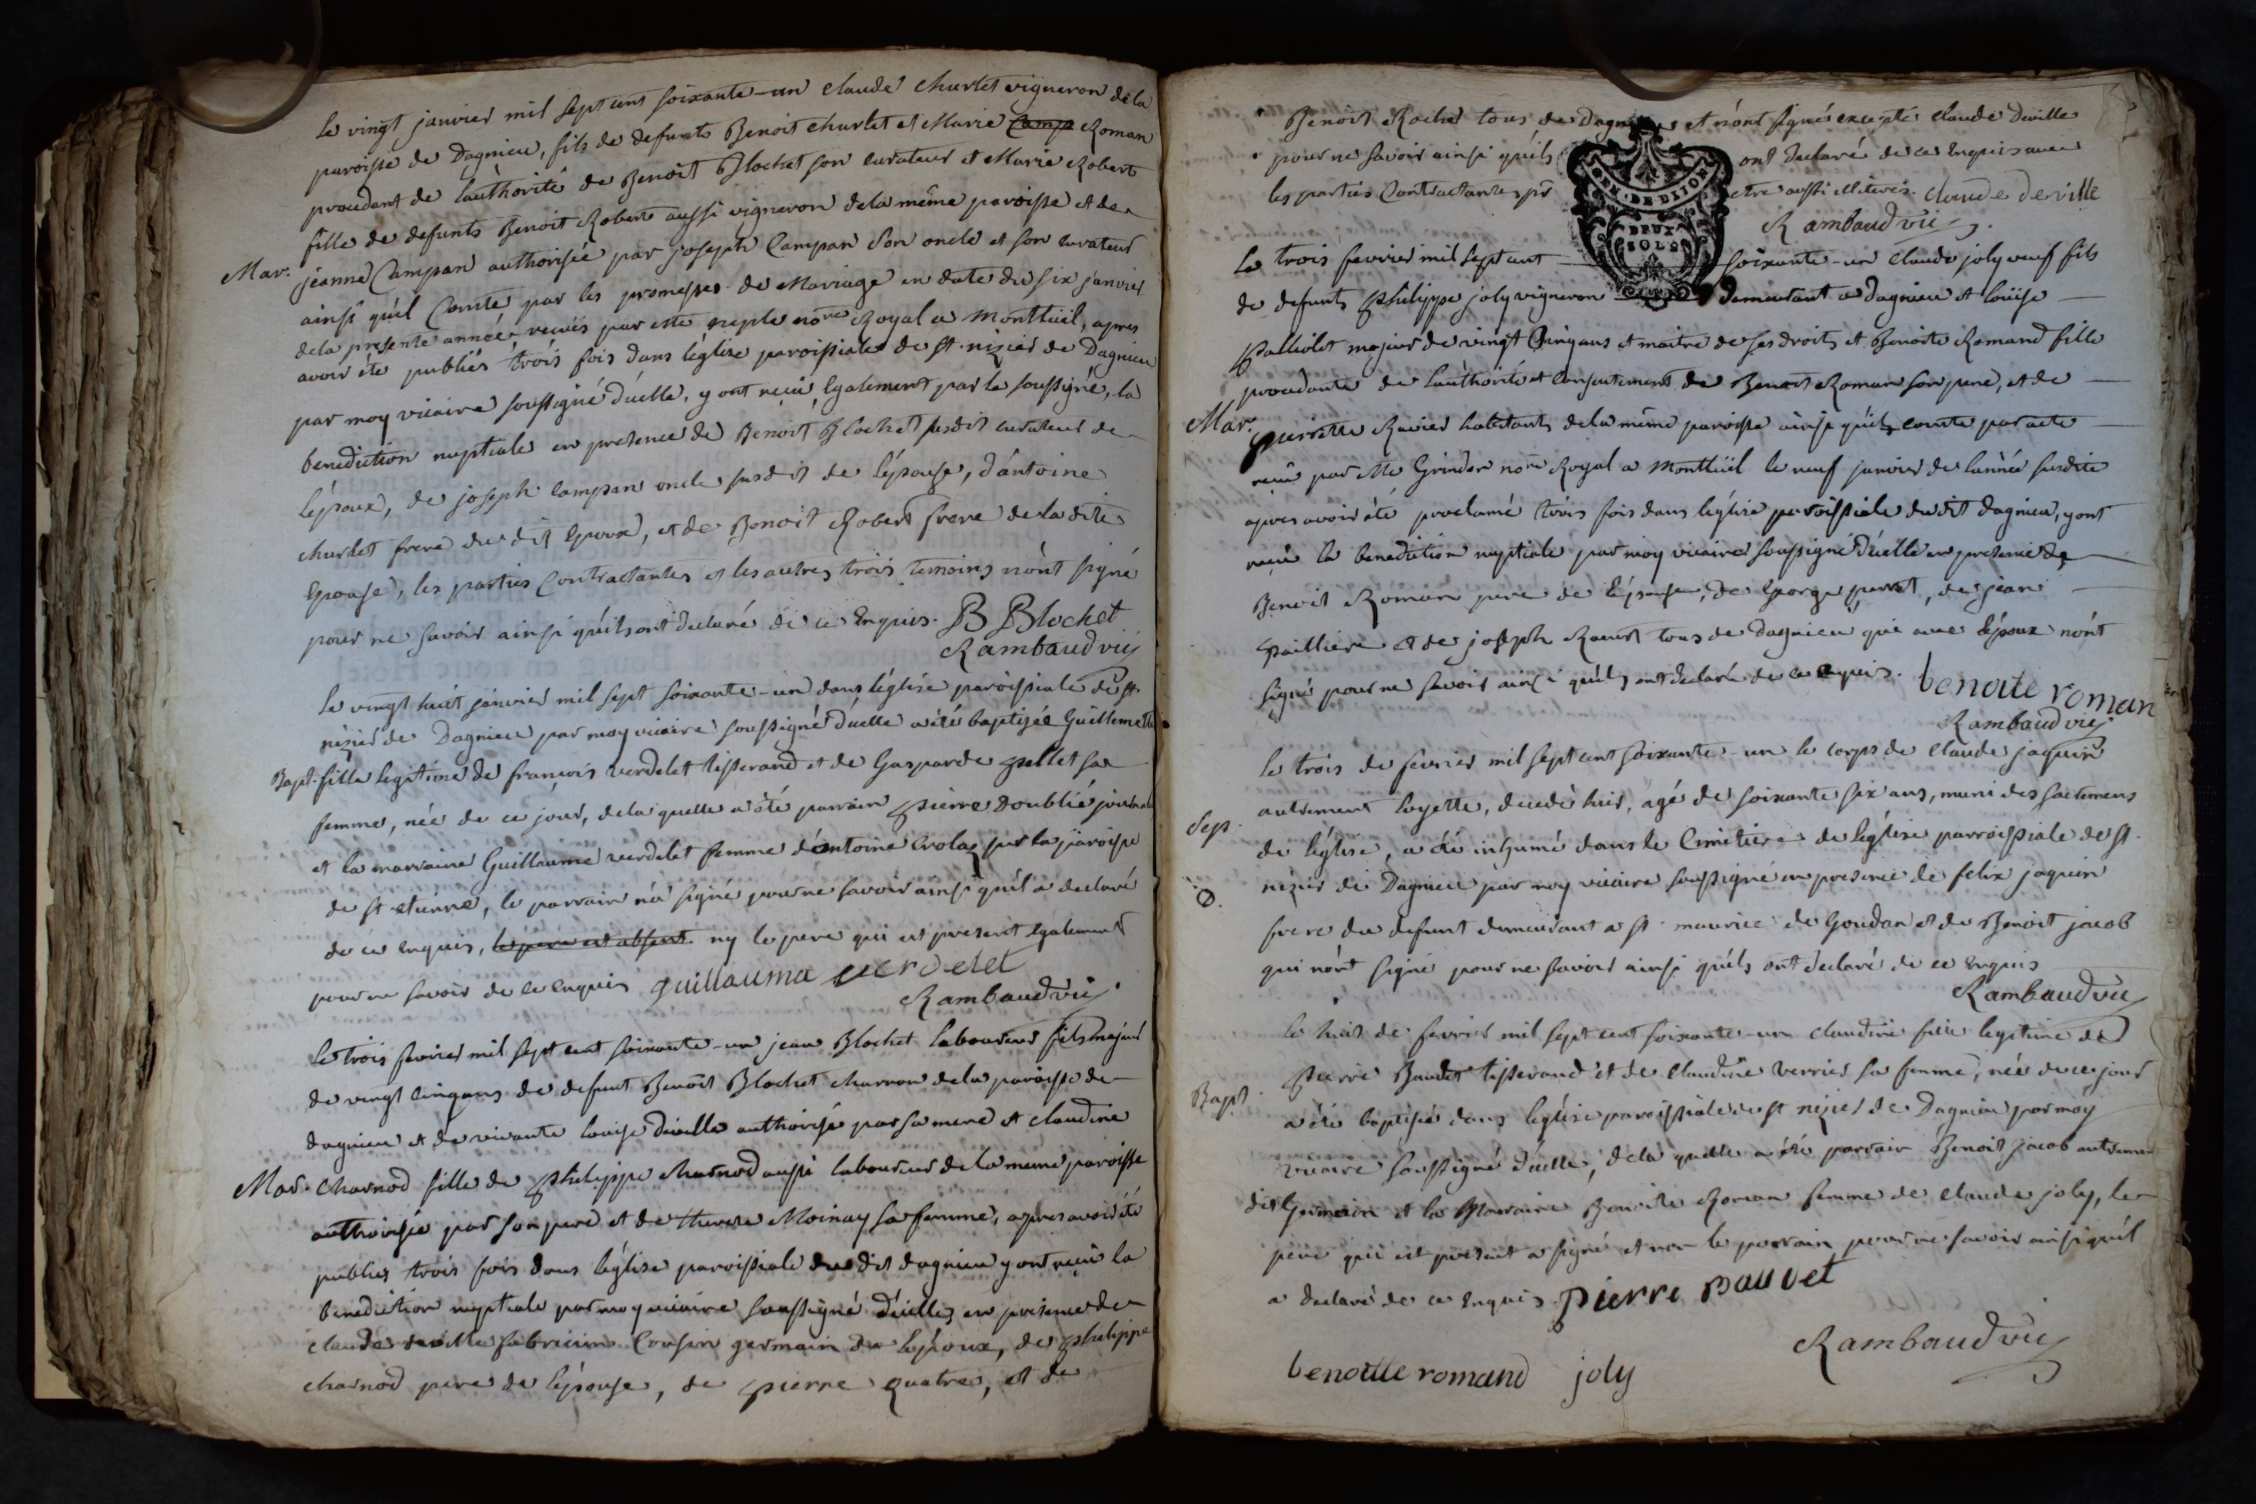 le vingt janvier mil sept cent soixante-un claude churlet vigneron de la
paroisse de Dagnieu, fils de defunts Benoit churlet et Marie Camp Roman
procedant de l'authorité de Benoit Blochet son curateur et Marie Robert
fille de defunts Benoit Robert aussi vigneron de la même paroisse et de
Mar. jeanne Campan authorisée par joseph Campan son oncle et son curateur
ainsi qu'il Conste par les promesses de Mariage en date du six janvier
de la presente année, recuës par no.re Royal a Montluil, apres
avoir été publiés trois fois dans l'église paroissiale de st. nizier de Dagnieu
par moy vicaire soussigné d'icelle, y ont reçu, Egalement par le soussigné, la
benediction nuptiale en presence de Benoit Blochet susdit curateur de
l'époux, de joseph campan oncle susdit de l'épouse, d'antoine
churlet frere du dit Epoux, et de Benoit Robert frere de la dite
Epouse, les parties Contractantes et les autres trois temoins n'ont signé
pour ne savoir ainsi qu'ils ont declaré de ce Enquis. B Blochet
Rambaud vic
le vingt huit janvier mil sept soixante-un dans l'église paroissiale de st.
nizier de Dagnieu par moy vicaire soussigné d'icelle a été baptisée Guillemette
Bapt. fille legitime de françois verdelet tisserand et de Gasparde sa
femme, née de ce jour, de la quelle a été parrain pierre Doublié
et la marraine Guillauma verdelet femme d'antoine Crolaz sur la paroisse
de st etienne, le parrain n'a signé pour ne savoir ainsi qu'il a declaré
de ce Enquis, le pere est absent ny le pere qui est present Egalement
pour ne savoir de ce Enquis guillauma verdelet
Rambaud vic
le trois fevrier mil sept cent soixante-un jean Blochet laboureur fils majeur
de vingt cinq ans de defunt Benoit Blochet charron de la paroisse de
dagnieu et de vivante louise deville authorisé par sa mere et claudine
Mar. charnod fille de philippe charnod aussi laboureur de la meme paroisse
authorisée par son pere et de therese Moinay sa femme, apres avoir été
publiés trois fois dans l'église paroissiale dudit dagnieu y ont reçu la
benediction nuptiale par moy vicaire soussigné d'icelle, en presence de
claude deville fabricien Cousin germain de l'époux, de philippe
charnod pere de l'épouse, de pierre quatre, et de
Benoit Rochet tous de Dagnieu et n'ont signé excepté claude deville
pour ne savoir ainsi qu'ils ont declaré de ce Enquis avec
les parties Contractantes pr etre aussi illiterés. claude deville
GEN. DE DIJON
DEUX
SOLS
Rambaud vic
le trois fevrier mil sept cent soixante-un claude joly veuf fils
de defunts philippe joly vigneron demeurant a dagnieu et louise
palliolet majeur de vingt Cinq ans et maitre de ses droits et Benoite Romand fille
procedante de l'authorité et consentement de Benoit Roman son pere, et de
Mar. pierrette Ravier habitants de la même paroisse ainsi qu'il conste par acte
reçu par Me Grindon no.re Royal a Montluil le neuf janvier de l'année susdite
apres avoir été proclamé trois fois dans l'église paroissiale du dit dagnieu, y ont
reçu la benediction nuptiale par moy vicaire soussigné d'icelle en presence de
Benoit Roman pere de l'épouse, de George perret, de jean
pailliere et de joseph tous de Dagnieu qui avec l'époux n'ont
signé pour ne savoir ainsi qu'ils ont declaré de ce enquis. benoite roman
Rambaud vic
le trois de fevrier mil sept cent soixante-un le corps de claude jaquin
autrement loyette, decedé hier, agé de soixante six ans, muni des sacremens
Sep. de l'église, a été inhumé dans le Cimetiere de l'église parroissiale de st.
nizier de Dagnieu par moy vicaire soussigné en presence de felix jaquin
frere du defunt demeurant a st. maurice de Gourdan et de Benoit jacob
qui n'ont signé pour ne savoir ainsi qu'ils ont declaré de ce Enquis
Rambaud vic
le huit de fevrier mil sept cent soixante-un claudine fille legitime de
pierre Baudet tisserand et de claudine verrier sa femme, née de ce jour
Bapt. a été baptisée dans l'église paroissiale de st nizier de Dagnieu par moy
vicaire soussigné d'icelle, de la quelle a été parrain Benoit jacob autrement
dit Germain et la Marraine Benoite Roman femme de claude joly, le
pere qui est present a signé et non le parrain pour ne savoir ainsi qu'il
a declaré de ce Enquis. pierre Bauvet
Rambaud vic
benoitte romand joly